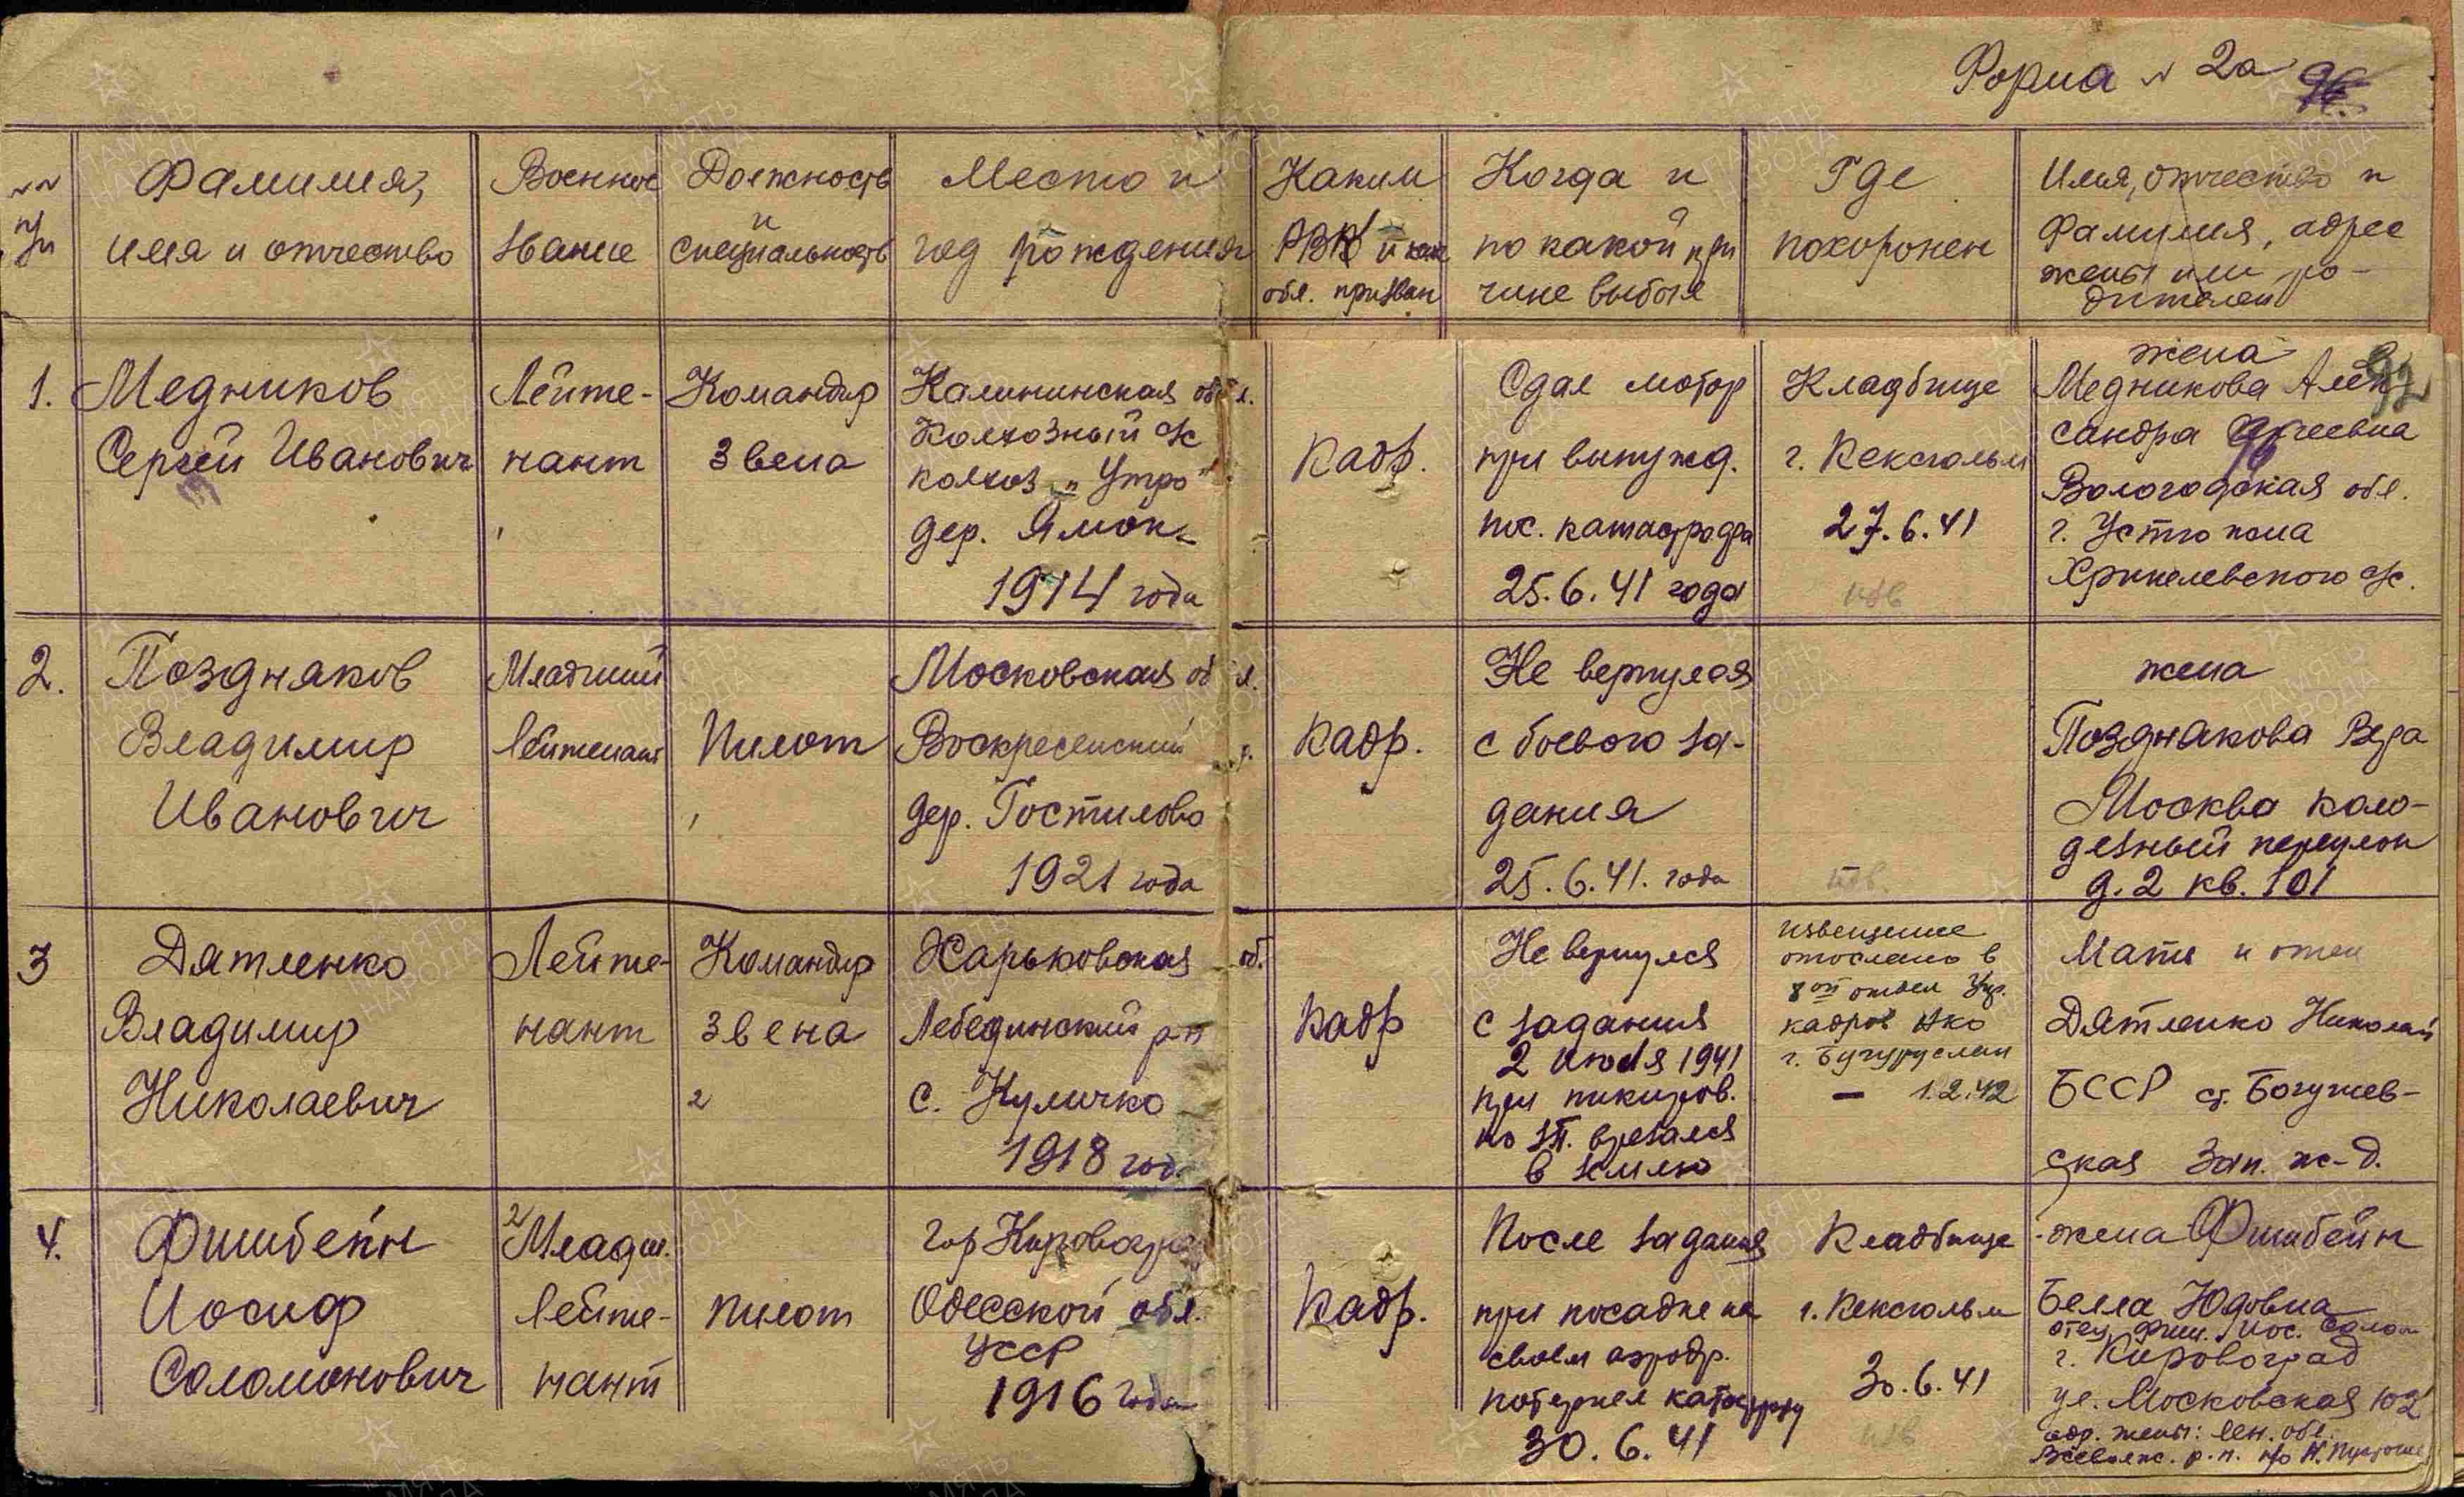 Форма № 2а
№№ п/п
Фамилия,
имя и отчество
Военное
звание
Должность
и
специальность
Место и
год рождения
Каким
РВК и как.
обл. призван
Когда и
по какой при
чине выбыл
Где
похоронен
Имя, отчество и
фамилия, адрес
жены или ро-
дителей
1.
Медников
Сергей Иванович
Лейте-
нант
Командир
звена
Калининская обл.
Колхозный
колхоз "Утро"
дер.
1914 года
Кадр.
Сдал мотор
при вынужд.
пос. катастрофа
25.6.41 года
Кладбище
г. Кексгольм
27.6.41
изв
жена
Медникова Алек
сандра
Вологодская обл.
г. Устюжна
92
2.
Поздняков
Владимир
Иванович
Младший
лейтенант
Пилот
Московская обл.
Воскресенский р.
дер. Гостилово
1921 года
Кадр.
Не вернулся
с боевого за-
дания
25.6.41. года
изв.
жена
Позднякова Вера
Москва Коло-
дезный переулок
д. 2 кв. 101
3
Дятленко
Владимир
Николаевич
Лейте-
нант
Командир
звена
Харьковская об.
Лебединский р-н
с. Куличко
1918 год.
Кадр
Не вернулся
с задания
2 июля 1941
при пикиров.
по зп. врезался
в землю
извещение
отослано в
8ой отдел Упр.
кадров
г. Бугуруслан
— 1.2.42
Мать и отец
Дятленко Николай
БССР ст. Богушев-
ская Зап. ж-д.
4.
Фишбейн
Иосиф
Соломонович
Младш.
лейте-
нант
Пилот
гор Кировоград
Одесской обл.
УССР
1916 года
Кадр.
После задания
при посадке на
своем аэродр.
потерпел катастрофу
30.6.41
Кладбище
г. Кексгольм
30.6.41
изв
жена Фишбейн
Белла Юдовна
отец Фиш.
г. Кировоград
ул. Московская 102
адр. жены: Лен. обл.
Всеволж. р-н.
ПАМЯТЬ
НАРОДА